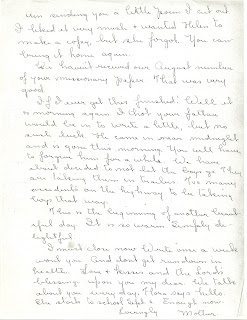 Am sending you a little poem I cut out
I liked it very much & wanted Helen to
make a copy, but she forgot. You can
bring it home again.
We haven't received our August number
of your missionary paper. That was very
good.
I'll ever get this finished! Well it
is morning again. I that your father
would be in to write a little, but no
such luck. He came in near midnight
and is gone this morning. You will have
to forgive him for a while. We have
about decided to not let the boys go They
are taking them in trailer. Too many
accidents on the highway to be taking
boys that way.
This is the beginning of another beauti
ful day. It is so warm. Simply de-
lightful.
I must close now. Write once a week
wont you And dont get run down in
health. Love & kisses and the Lord's
blessing upon you my dear. We talk
about you every day. Flora says hello
She starts to school Sept 4. Enough now.
Lovingly Mother